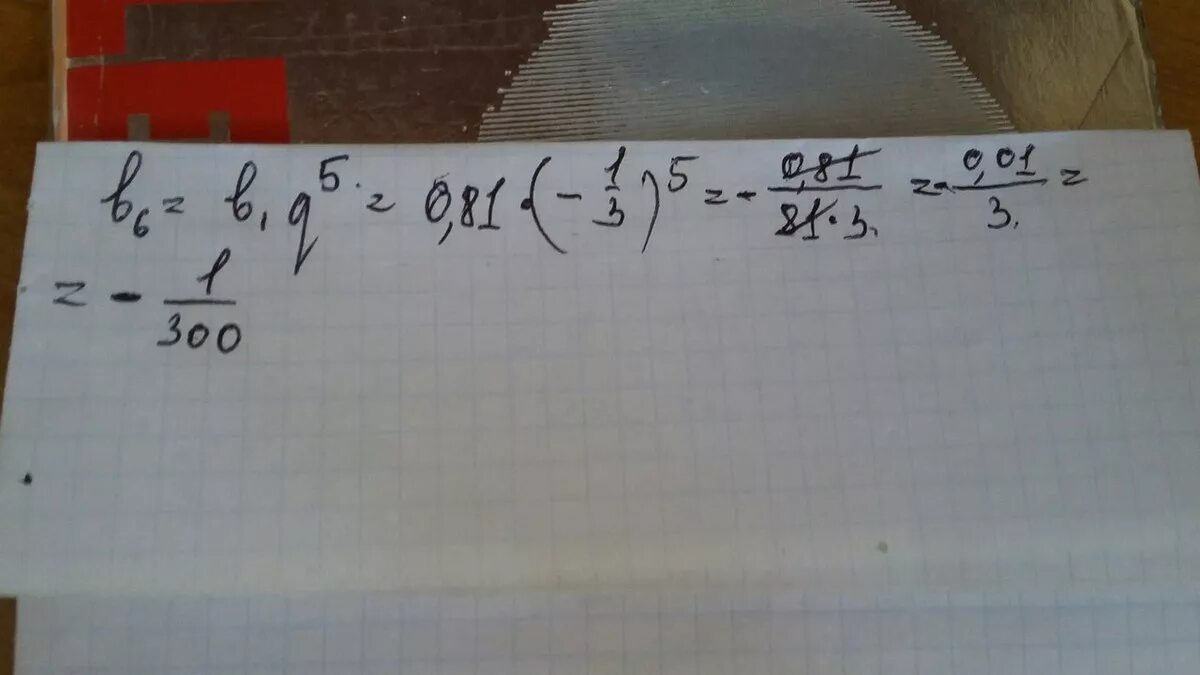 b₆ = b₁ q⁵ = 0,81 · (- 1/3)⁵ = - 0,81/(81·3) = - 0,01/3 =
= - 1/300